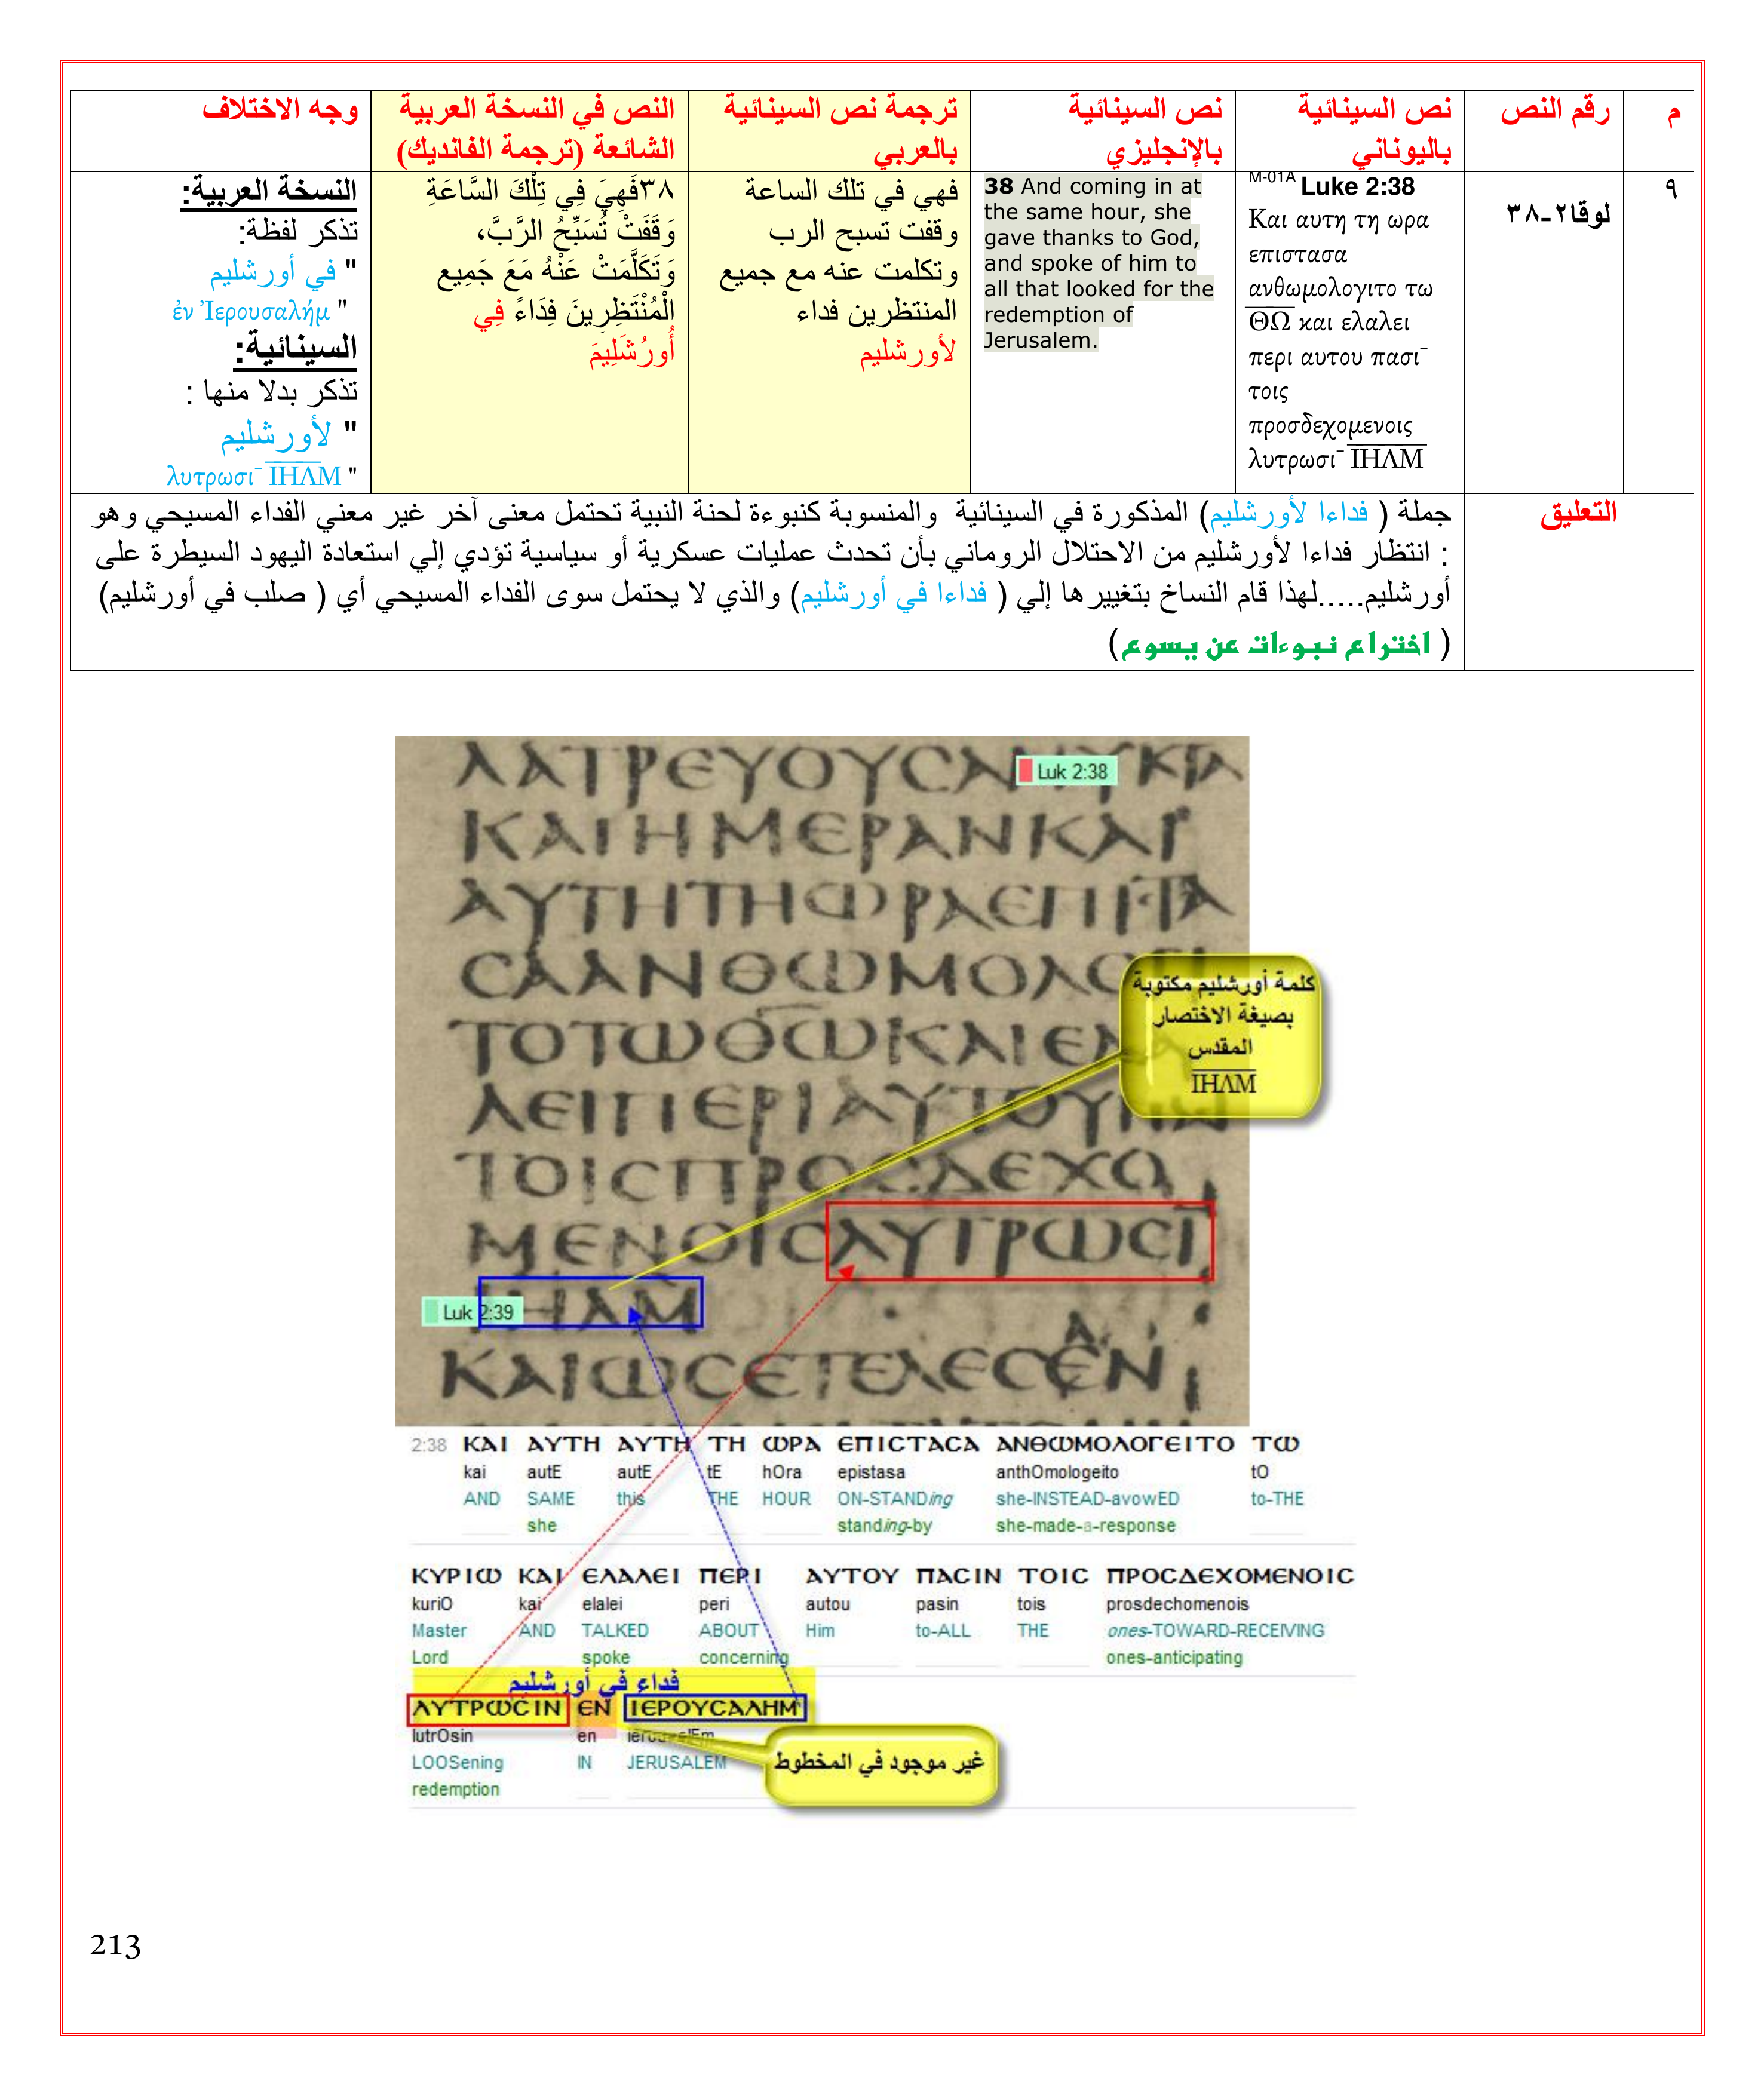 م
رقم النص
نص السينائية
باليوناني
نص السينائية
بالإنجليزي
ترجمة نص السينائية
بالعربي
النص في النسخة العربية
الشائعة (ترجمة الفانديك)
وجه الاختلاف
٩
لوقا٢-٣٨
M-01A Luke 2:38
Και αυτη τη ωρα
επιστασα
ανθωμολογιτο τω
Θ͞Ω͞ και ελαλει
περι αυτου πασι¯
τοις
προσδεχομενοις
λυτρωσι¯ Ι͞Η͞Λ͞Μ͞
38 And coming in at
the same hour, she
gave thanks to God,
and spoke of him to
all that looked for the
redemption of
Jerusalem.
فهي في تلك الساعة
وقفت تسبح الرب
وتكلمت عنه مع جميع
المنتظرين فداء
لأورشليم
٣٨فَهِيَ فِي تِلْكَ السَّاعَةِ
وَقَفَتْ تُسَبِّحُ الرَّبَّ،
وَتَكَلَّمَتْ عَنْهُ مَعَ جَمِيعِ
الْمُنْتَظِرِينَ فِدَاءً فِي
أُورُشَلِيمَ
النسخة العربية:
تذكر لفظة:
" في أورشليم
ἐν Ἰερουσαλήμ "
السينائية:
تذكر بدلا منها :
" لأورشليم
λυτρωσι¯ Ι͞Η͞Λ͞Μ͞ "
التعليق
جملة ( فداءا لأورشليم) المذكورة في السينائية والمنسوبة كنبوءة لحنة النبية تحتمل معنى آخر غير معني الفداء المسيحي وهو
: انتظار فداءا لأورشليم من الاحتلال الروماني بأن تحدث عمليات عسكرية أو سياسية تؤدي إلي استعادة اليهود السيطرة على
أورشليم.....لهذا قام النساخ بتغييرها إلي ( فداءا في أورشليم) والذي لا يحتمل سوى الفداء المسيحي أي ( صلب في أورشليم)
( اختراع نبوءات عن يسوع)
ΛΑΤΡΕΥΟΥCΑ ΝΥΚΤΑ
Luk 2:38
ΚΑΙΗΜΕΡΑΝΚΑΙ
ΑΥΤΗΤΗΩΡΑΕΠΙCΤΑ
CΑΑΝΘΩΜΟΛΟΓΙ
ΤΟΤΩΘΩΚΑΙΕΛΑ
ΛΕΙΠΕΡΙΑΥΤΟΥΠΑ
ΤΟΙCΠΡΟCΔΕΧΟ
ΜΕΝΟΙCΛΥΤΡΩCΙ
ΙΗΛΜ
Luk 2:39
ΚΑΙΩCΕΤΕΛΕCΕΝ
كلمة أورشليم مكتوبة
بصيغة الاختصار
المقدس
Ι͞Η͞Λ͞Μ͞
2:38 ΚΑΙ ΑΥΤΗ ΑΥΤΗ ΤΗ ΩΡΑ ΕΠΙCΤΑCΑ ΑΝΘΩΜΟΛΟΓΕΙΤΟ ΤΩ
kai autE autE tE hOra epistasa anthOmologeito tO
AND SAME this THE HOUR ON-STANDing she-INSTEAD-avowED to-THE
she standing-by she-made-a-response
ΚΥΡΙΩ ΚΑΙ ΕΛΑΛΕΙ ΠΕΡΙ ΑΥΤΟΥ ΠΑCΙΝ ΤΟΙC ΠΡΟCΔΕΧΟΜΕΝΟΙC
kuriO kai elalei peri autou pasin tois prosdechomenois
Master AND TALKED ABOUT Him to-ALL THE ones-TOWARD-RECEIVING
Lord spoke concerning ones-anticipating
فداء في أورشليم
ΛΥΤΡΩCΙΝ ΕΝ ΙΕΡΟΥCΑΛΗΜ
lutrOsin en
LOOSening IN JERUSALEM
redemption
غير موجود في المخطوط
213